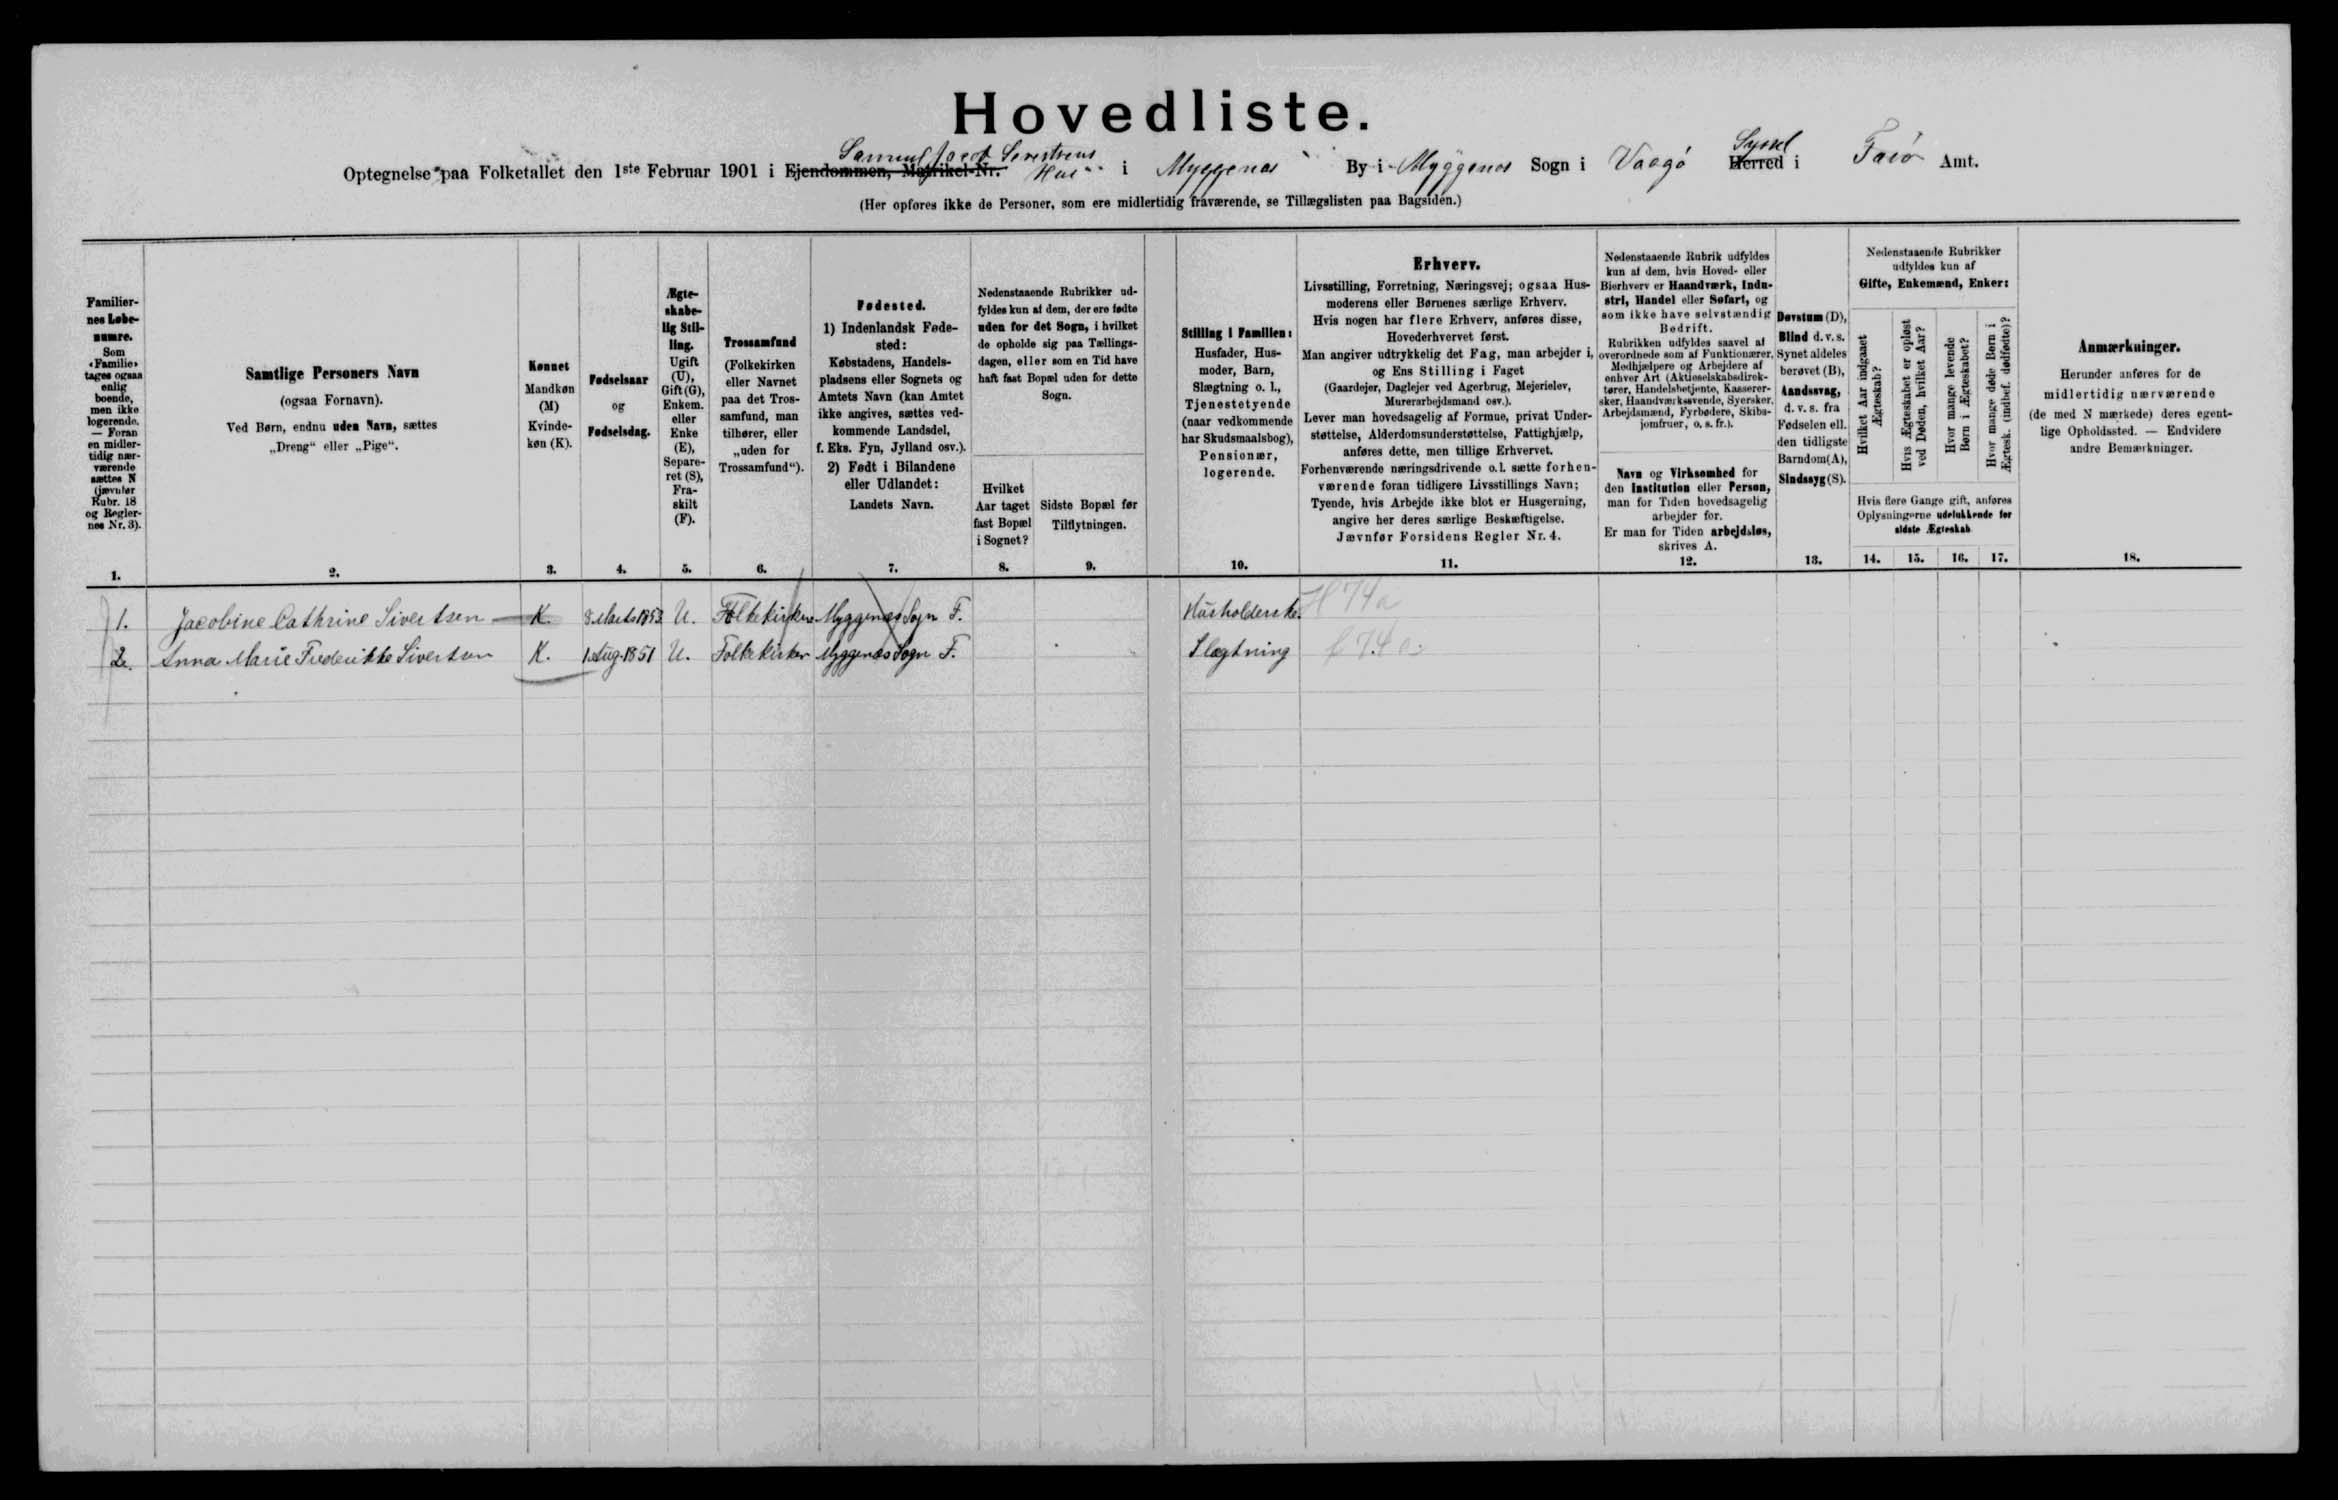 Hovedliste.
Optegnelse paa Folketallet den 1ste Februar 1901 i Ejendommen, Matrikel-Nr. Samuel Jacob Sivertsens Hus i Myggenæs By i Myggenæs Sogn i Vaagø Herred Syssel i Færø Amt.
(Her opføres ikke de Personer, som ere midlertidig fraværende, se Tillægslisten paa Bagsiden.)
Familiernes Løbenumre.
Som «Familie» tages ogsaa enlig boende, men ikke logerende. — Foran en midlertidig nærværende sættes N (jævnfør Rubr. 18 og Reglernes Nr. 3).
1.
Samtlige Personers Navn
(ogsaa Fornavn).
Ved Børn, endnu uden Navn, sættes
„Dreng“ eller „Pige“.
2.
Kønnet
Mandkøn (M)
Kvindekøn (K).
3.
Fødselsaar
og
Fødselsdag.
4.
Ægteskabelig Stilling.
Ugift (U), Gift (G), Enkem. eller Enke (E), Separeret (S), Fraskilt (F).
5.
Trossamfund
(Folkekirken eller Navnet paa det Trossamfund, man tilhører, eller „uden for Trossamfund“).
6.
Fødested.
1) Indenlandsk Fødested:
Købstadens, Handelspladsens eller Sognets og Amtets Navn (kan Amtet ikke angives, sættes vedkommende Landsdel, f. Eks. Fyn, Jylland osv.).
2) Født i Bilandene eller Udlandet:
Landets Navn.
7.
Nedenstaaende Rubrikker udfyldes kun af dem, der ere fødte uden for det Sogn, i hvilket de opholde sig paa Tællingsdagen, eller som en Tid have haft fast Bopæl uden for dette Sogn.
Hvilket Aar taget fast Bopæl i Sognet?
8.
Sidste Bopæl før Tilflytningen.
9.
Stilling i Familien:
Husfader, Husmoder, Barn, Slægtning o. l., Tjenestetyende (naar vedkommende har Skudsmaalsbog), Pensionær, logerende.
10.
Erhverv.
Livsstilling, Forretning, Næringsvej; ogsaa Husmoderens eller Børnenes særlige Erhverv.
Hvis nogen har flere Erhverv, anføres disse, Hovederhvervet først.
Man angiver udtrykkelig det Fag, man arbejder i, og Ens Stilling i Faget
(Gaardejer, Daglejer ved Agerbrug, Mejerielev, Murerarbejdsmand osv.).
Lever man hovedsagelig af Formue, privat Understøttelse, Alderdomsunderstøttelse, Fattighjælp, anføres dette, men tillige Erhvervet.
Forhenværende næringsdrivende o. l. sætte forhenværende foran tidligere Livsstillings Navn;
Tyende, hvis Arbejde ikke blot er Husgerning, angive her deres særlige Beskæftigelse.
Jævnfør Forsidens Regler Nr. 4.
11.
Nedenstaaende Rubrik udfyldes kun af dem, hvis Hoved- eller Bierhverv er Haandværk, Industri, Handel eller Søfart, og som ikke have selvstændig Bedrift.
Rubrikken udfyldes saavel af overordnede som af Funktionærer, Medhjælpere og Arbejdere af enhver Art (Aktieselskabsdirektører, Handelsbetjente, Kasserersker, Haandværkssvende, Syersker, Arbejdsmænd, Fyrbødere, Skibsjomfruer, o. s. fr.).
Navn og Virksomhed for den Institution eller Person, man for Tiden hovedsagelig arbejder for.
Er man for Tiden arbejdsløs, skrives A.
12.
Døvstum (D),
Blind d. v. s. Synet aldeles berøvet (B),
Aandssvag, d. v. s. fra Fødselen ell. den tidligste Barndom (A),
Sindssyg (S).
13.
Nedenstaaende Rubrikker udfyldes kun af
Gifte, Enkemænd, Enker:
Hvilket Aar indgaaet Ægteskab?
Hvis Ægteskabet er opløst ved Døden, hvilket Aar?
Hvor mange levende Børn i Ægteskabet?
Hvor mange døde Børn i Ægtesk. (indbef. dødfødte)?
Hvis flere Gange gift, anføres Oplysningerne udelukkende for sidste Ægteskab
14. 15. 16. 17.
Anmærkninger.
Herunder anføres for de midlertidig nærværende (de med N mærkede) deres egentlige Opholdssted. — Endvidere andre Bemærkninger.
18.
1. Jacobine Cathrine Sivertsen K. 8 Marts 1853 U. Folkekirken Myggenæs Sogn F. Husholderske. H 74a
2. Anna Marie Frederikke Sivertsen K. 1 Aug. 1851 U. Folkekirken Myggenæs Sogn F. Slægtning f 74a